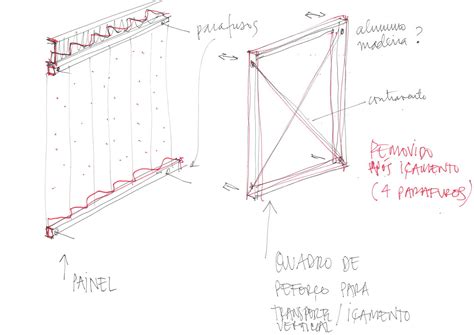 parafusos
alumínio
madeira ?
contravento
REMOVIDO
APÓS IÇAMENTO
(4 PARAFUSOS)
PAINEL
QUADRO DE
REFORÇO PARA
TRANSPORTE / IÇAMENTO
VERTICAL